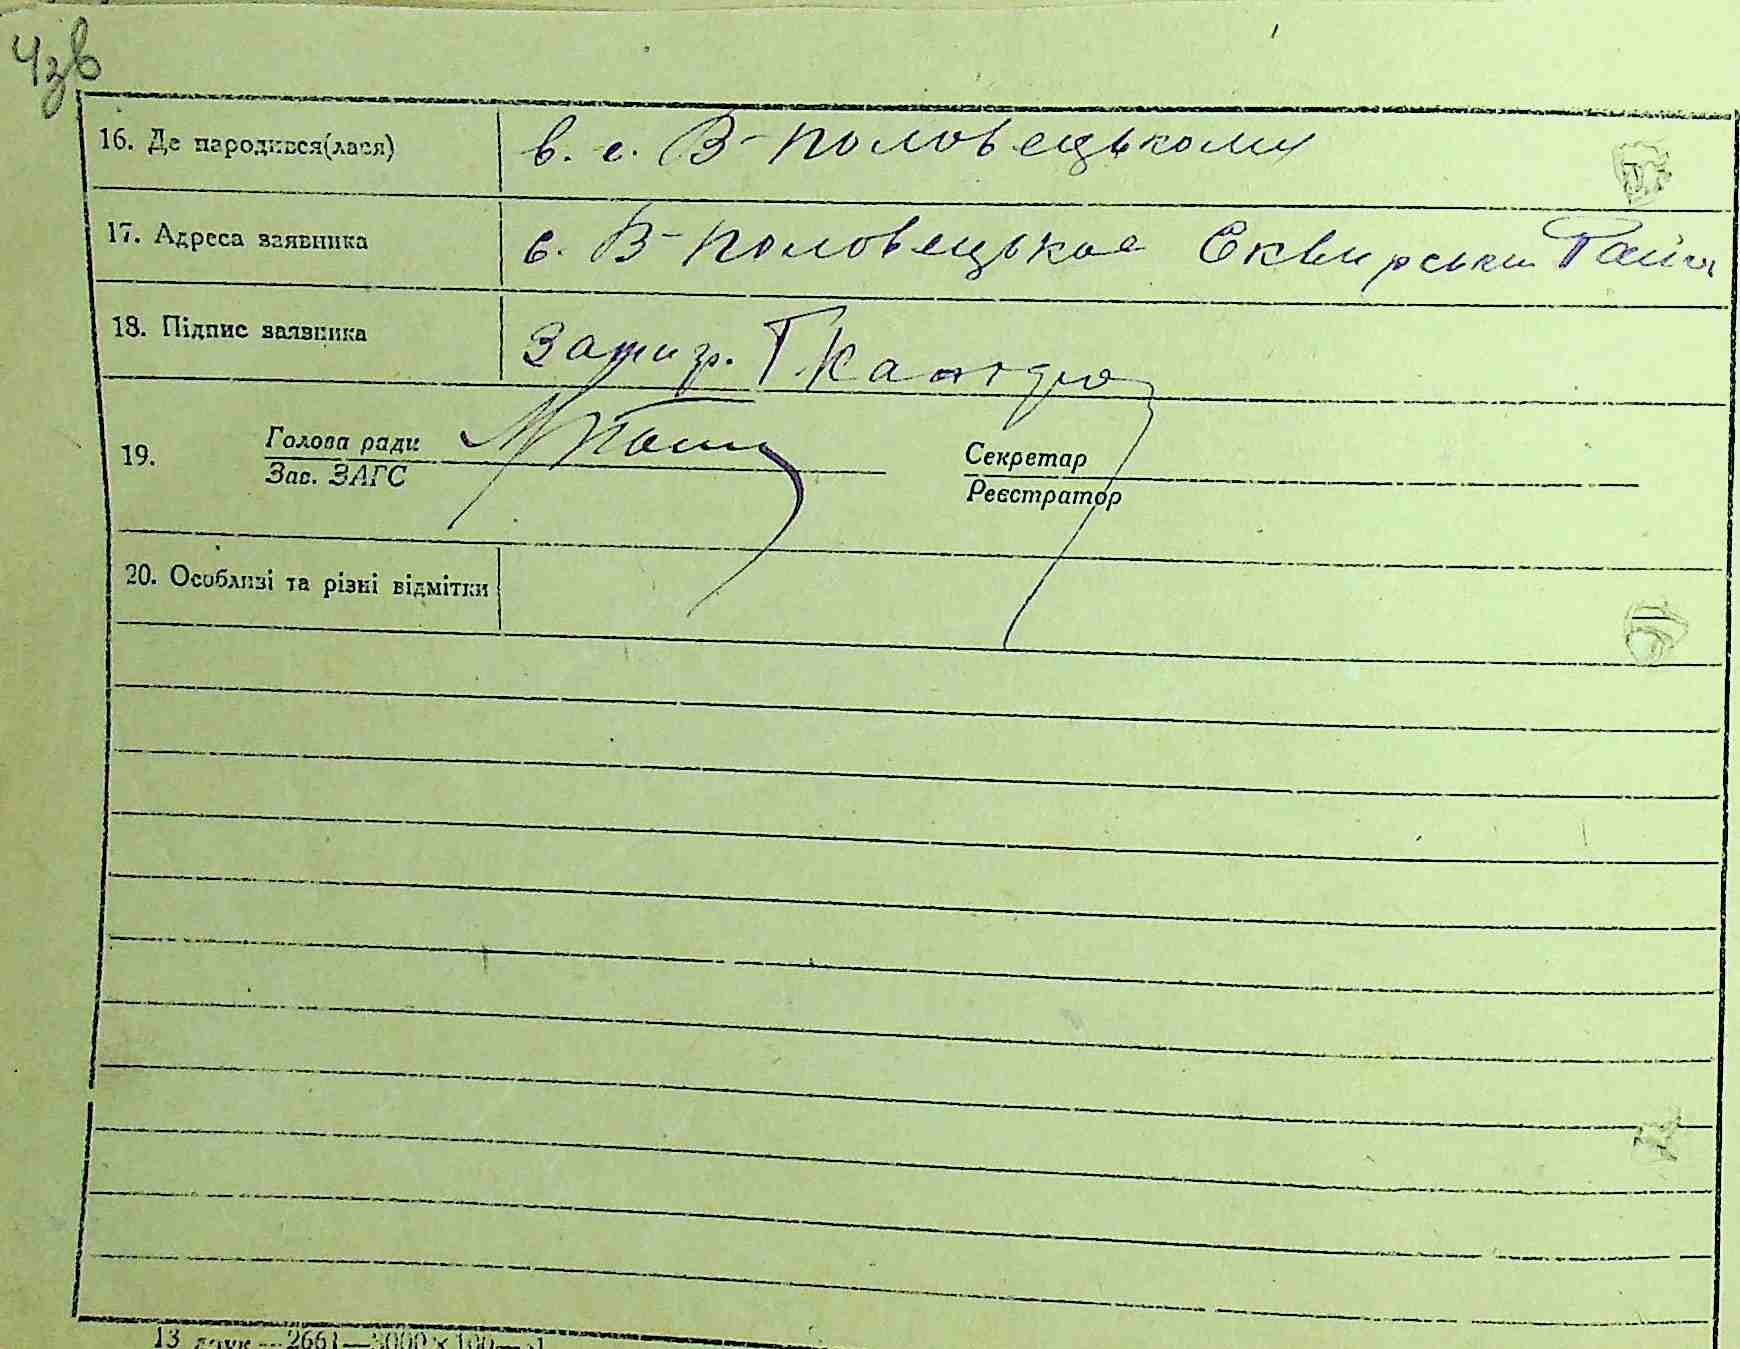 Чзв
16. Де народився(лася) в. с. В-Половецькому
17. Адреса заявника с. В-Половецьке Сквирськи Район
18. Підпис заявника
19. Голова ради Секретар
Зав. ЗАГС Реєстратор
20. Особливі та різні відмітки
13 друк—2661—3000×100—